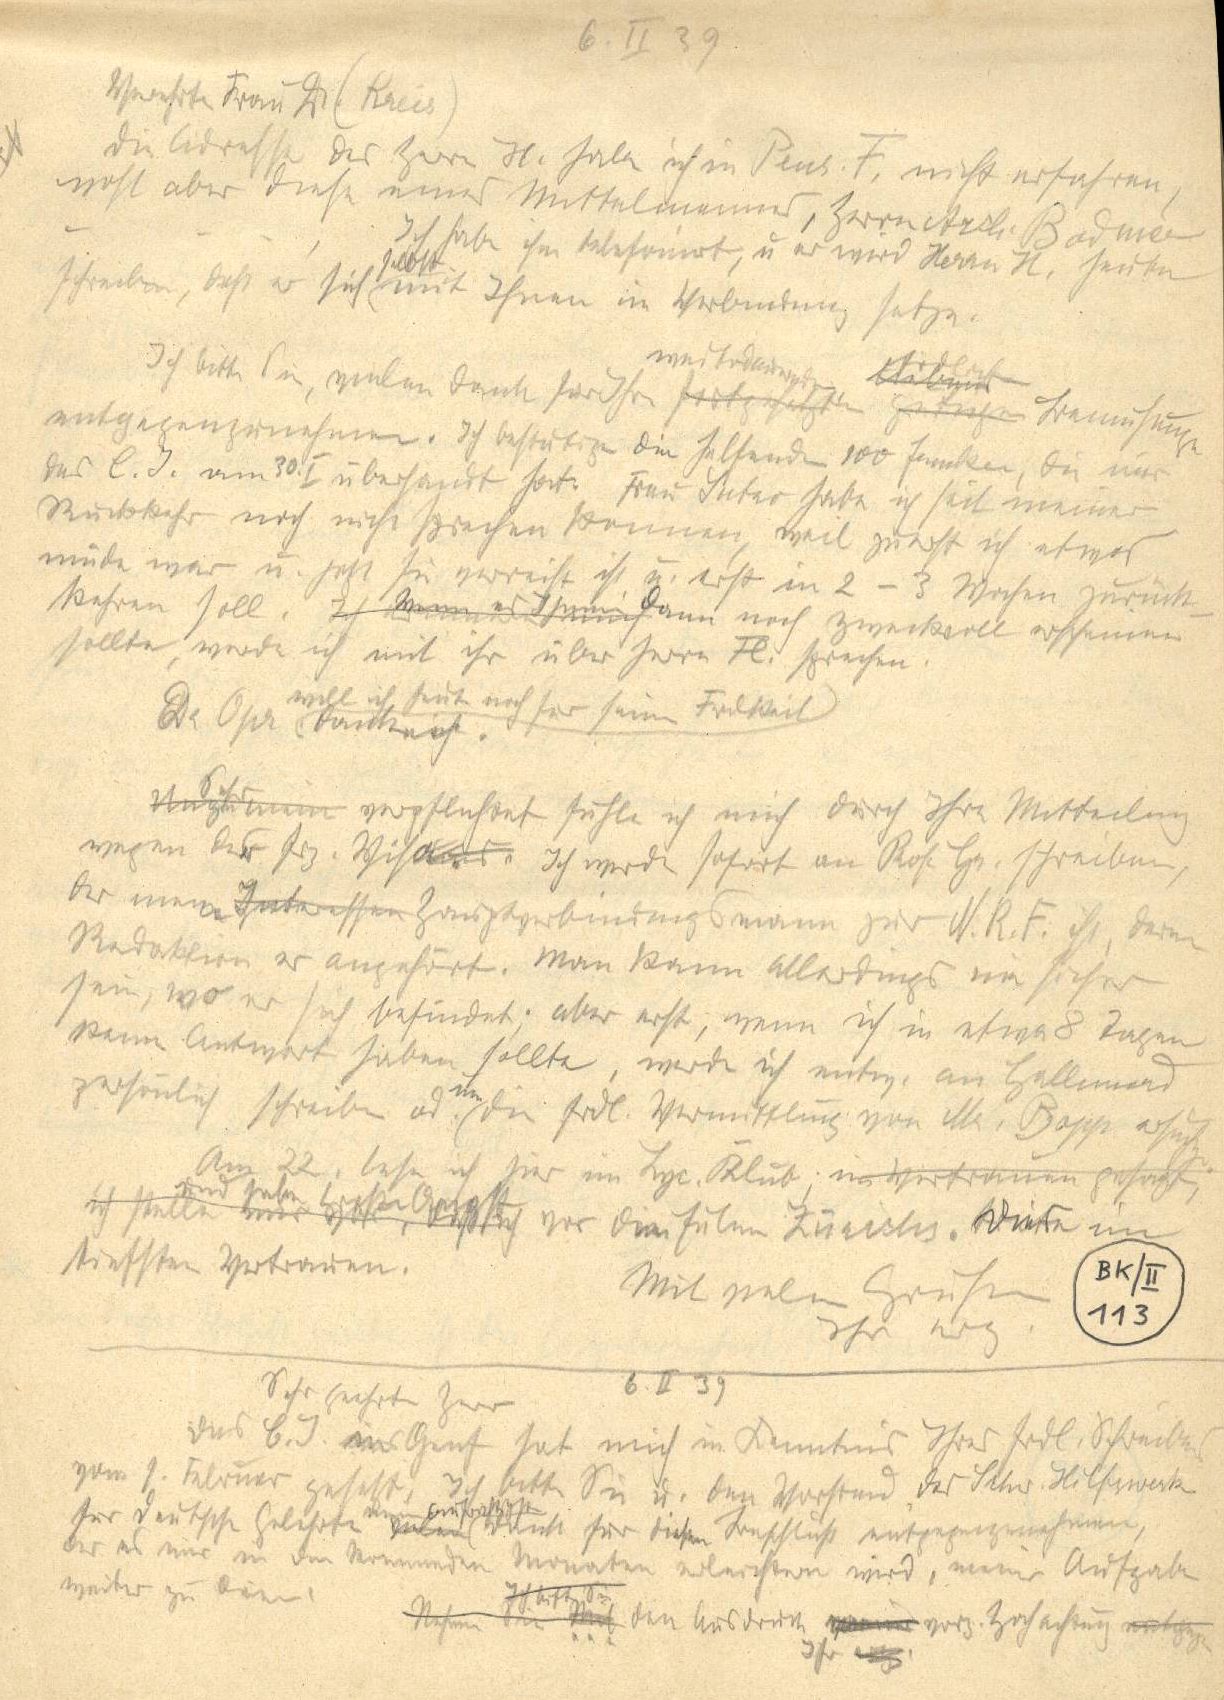 6. II 39
Verehrte Frau Dr. (Kreis)
die Adresse des Herrn H. habe ich in Pens. F. nicht erfahren,
wohl aber diese eines Mittelmannes, Herrn Arch. Bodmer
Ich habe ihm telefoniert, u er wird Herrn H. heute
schreiben, daß er sich selbst mit Ihnen in Verbindung setze.
Ich bitte Sie, vielen Dank für Ihre fortgesetzten Bemühungen
entgegenzunehmen. Ich bestätige die helfenden 100 Franken, die mir
das C. I. am 30. I übersandt hat. Frau Suter habe ich seit meiner
Rückkehr noch nicht sprechen können, weil zuerst ich etwas
müde war u. jetzt sie verreist ist u. erst in 2 – 3 Wochen zurück-
kehren soll. Wenn es Ihnen dann noch zweckvoll erscheinen
sollte, werde ich mit ihr über Herrn Fl. sprechen.
will ich heute noch für sein
danken.
Sehr
verpflichtet fühle ich mich durch Ihre Mitteilung
wegen des frz. Ich werde sofort an schreiben,
der mein Interessen Hauptverbindungsmann zur N. R. F. ist, deren
Redaktion er angehört. Man kann allerdings nie sicher
sein, wo er sich befindet; aber erst, wenn ich in etwa 8 Tagen
keine Antwort haben sollte, werde ich entw. an
persönlich schreiben od. um die frdl. Vermittlung von Bopp
Am 22. lese ich hier im Lyc. Klub; im Vertrauen gesagt,
und habe große Angst
ich vor den Zürichs. Dies im
tiefsten Vertrauen.
Mit vielen Grüßen
Ihr erg.
BK/II
113
6. II 39
Sehr geehrter Herr
das C. I. in Genf hat mich in Kenntnis Ihres frdl. Schreibens
vom 1. Februar gesetzt. Ich bitte Sie u. den Vorstand des Schw. Hilfswerks
für deutsche Gelehrte Dank für diesen Beschluß entgegenzunehmen,
der es mir in den kommenden Monaten erleichtern wird, meine Aufgabe
weiter zu
Ich bitte Sie
Nehmen Sie den Ausdruck vorz. Hochachtung
Ihr erg.